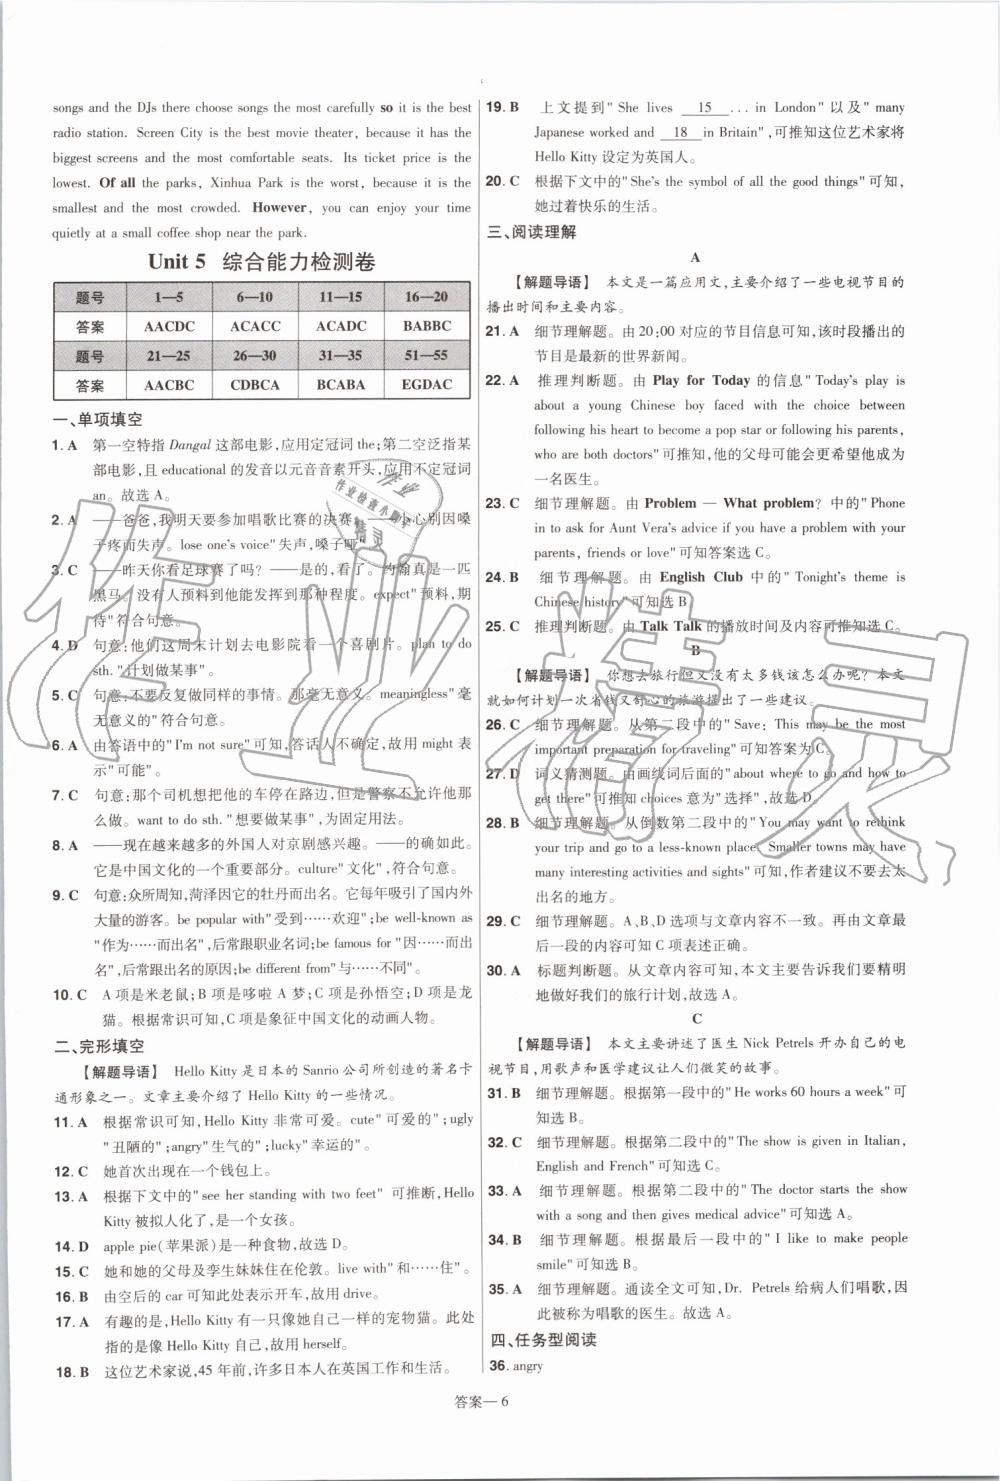 songs and the DJs there choose songs the most carefully so it is the best
radio station. Screen City is the best movie theater, because it has the
biggest screens and the most comfortable seats. Its ticket price is the
lowest. Of all the parks, Xinhua Park is the worst, because it is the
smallest and the most crowded. However, you can enjoy your time
quietly at a small coffee shop near the park.
Unit 5 综合能力检测卷
题号 1—5 6—10 11—15 16—20
答案 AACDC ACACC ACADC BABBC
题号 21—25 26—30 31—35 51—55
答案 AACBC CDBCA BCABA EGDAC
一、单项填空
1. A 第一空特指 Dangal 这部电影,应用定冠词 the;第二空泛指某
部电影,且 educational 的发音以元音音素开头,应用不定冠词
an。故选 A。
2. A ——爸爸,我明天要参加唱歌比赛的决赛。——小心别因嗓
子疼而失声。lose one's voice"失声,嗓子哑"。
3. C ——昨天你看足球赛了吗? ——是的,看了。约翰真是一匹
黑马。没有人预料到他能发挥到那种程度。expect"预料,期
待"符合句意。
4. D 句意:他们这周末计划去电影院看一个喜剧片。plan to do
sth. "计划做某事"。
5. C 句意:不要反复做同样的事情。那毫无意义。meaningless"毫
无意义的"符合句意。
6. A 由答语中的"I'm not sure"可知,答话人不确定,故用 might 表
示"可能"。
7. C 句意:那个司机想把他的车停在路边,但是警察不允许他那
么做。want to do sth. "想要做某事",为固定用法。
8. A ——现在越来越多的外国人对京剧感兴趣。——的确如此。
它是中国文化的一个重要部分。culture"文化",符合句意。
9. C 句意:众所周知,菏泽因它的牡丹而出名。它每年吸引了国内外
大量的游客。be popular with"受到……欢迎";be well-known as
"作为……而出名",后常跟职业名词;be famous for"因……而出
名",后常跟出名的原因;be different from"与……不同"。
10. C A 项是米老鼠;B 项是哆啦 A 梦;C 项是孙悟空;D 项是龙
猫。根据常识可知,C 项是象征中国文化的动画人物。
二、完形填空
【解题导语】 Hello Kitty 是日本的 Sanrio 公司所创造的著名卡
通形象之一。文章主要介绍了 Hello Kitty 的一些情况。
11. A 根据常识可知,Hello Kitty 非常可爱。cute"可爱的";ugly
"丑陋的";angry"生气的";lucky"幸运的"。
12. C 她首次出现在一个钱包上。
13. A 根据下文中的"see her standing with two feet" 可推断,Hello
Kitty 被拟人化了,是一个女孩。
14. D apple pie(苹果派)是一种食物,故选 D。
15. C 她和她的父母及孪生妹妹住在伦敦。live with"和……住"。
16. B 由空后的 car 可知此处表示开车,故用 drive。
17. A 有趣的是,Hello Kitty 有一只像她自己一样的宠物猫。此处
指的是像 Hello Kitty 自己,故用 herself。
18. B 这位艺术家说,45 年前,许多日本人在英国工作和生活。
19. B 上文提到"She lives 15 ... in London"以及"many
Japanese worked and 18 in Britain",可推知这位艺术家将
Hello Kitty 设定为英国人。
20. C 根据下文中的"She's the symbol of all the good things"可知,
她过着快乐的生活。
三、阅读理解
A
【解题导语】 本文是一篇应用文,主要介绍了一些电视节目的
播出时间和主要内容。
21. A 细节理解题。由 20:00 对应的节目信息可知,该时段播出的
节目是最新的世界新闻。
22. A 推理判断题。由 Play for Today 的信息"Today's play is
about a young Chinese boy faced with the choice between
following his heart to become a pop star or following his parents,
who are both doctors"可知,他的父母可能会更希望他成为
一名医生。
23. C 细节理解题。由 Problem — What problem? 中的"Phone
in to ask for Aunt Vera's advice if you have a problem with your
parents, friends or love"可知答案选 C。
24. B 细节理解题。由 English Club 中的"Tonight's theme is
Chinese history"可知选 B
25. C 推理判断题。由 Talk Talk 的播放时间及内容可推知选 C。
B
【解题导语】 你想去旅行但又没有太多钱该怎么办呢?本文
就如何计划一次省钱又舒心的旅游提出了一些建议。
26. C 细节理解题。从第二段中的"Save: This may be the most
important preparation for traveling"可知答案为 C。
27. D 词义猜测题。由画线词后面的"about where to go and how to
get there"可推知 choices 意为"选择",故选 D。
28. B 细节理解题。从倒数第二段中的"You may want to rethink
your trip and go to a less-known place. Smaller towns may have
many interesting activities and sights"可知,作者建议不要去太
出名的地方。
29. C 细节理解题。A、B、D 选项与文章内容不一致。再由文章最
后一段的内容可知 C 项表述正确。
30. A 标题判断题。从文章内容可知,本文主要告诉我们要精明
地做好我们的旅行计划,故选 A。
C
【解题导语】 本文主要讲述了医生 Nick Petrels 开办自己的电
视节目,用歌声和医学建议让人们微笑的故事。
31. B 细节理解题。根据第一段中的"He works 60 hours a week"可
知选 B。
32. C 细节理解题。根据第二段中的"The show is given in Italian,
English and French"可知选 C。
33. A 细节理解题。根据第二段中的"The doctor starts the show
with a song and then gives medical advice"可知选 A。
34. B 细节理解题。根据最后一段中的"I like to make people
smile"可知选 B。
35. A 细节理解题。通读全文可知,Dr. Petrels 给病人们唱歌,因
此被称为唱歌的医生。故选 A。
四、任务型阅读
36. angry
答案—6
作业精灵